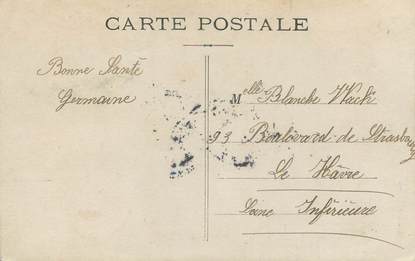 CARTE POSTALE
Bonne Santé
Germaine
Melle Blanche Wacké
93 Boulevard de Strasbourg
Le Hâvre
Seine Inférieure